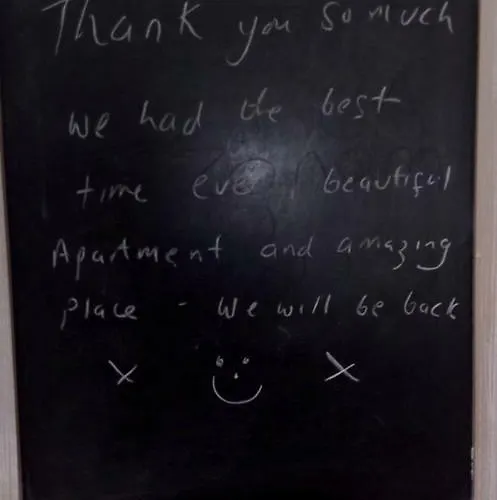 Thank you so much
we had the best
time ever, beautiful
Apartment and amazing
place - we will be back
x x